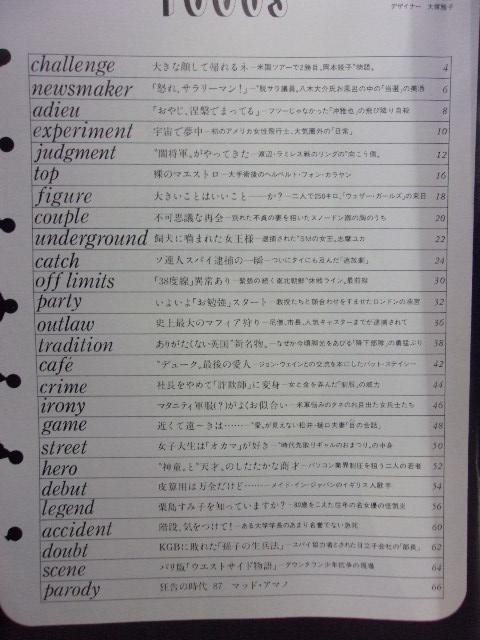 FOCUS
デザイナー 大塚雅子
challenge 大きな顔して帰れるネ―米国ツアーで2勝目。「岡本綾子」物語。 4
newsmaker 「怒れ、サラリーマン!」―"脱サラ議員。八木大介氏お風呂の中の「当選」の美酒 6
adieu 「おやじ、涅槃でまってる」―フツーじゃなかった「沖雅也」の飛び降り自殺 8
experiment 宇宙で夢中―初のアメリカ女性飛行士、大気圏外の「日常」 10
judgment "闇将軍。がやってきた―渡辺・ラミレス戦のリングの"向こう側。 12
top 裸のマエストロ―大手術後のヘルベルト・フォン・カラヤン 16
figure 大きいことはいいこと――か?―二人で250キロ、「ウェザー・ガールズ」の来日 18
couple 不可思議な再会―別れた不貞の妻を招いたスノードン卿の胸のうち 20
underground 飼犬に噛まれた女王様―逮捕された"SMの女王。志摩ユカ 22
catch ソ連人スパイ逮捕の一瞬―ついにタイにも及んだ「追放劇」 24
off limits 「38度線」異常あり―緊張の続く南北朝鮮"休戦ライン。最前線 30
party いよいよ「お勉強」スタート―教授たちと顔合わせをすませたロンドンの浩宮 32
outlaw 史上最大のマフィア狩り―尼僧、市長、人気キャスターまでが逮捕されて 36
tradition ありがたくない英国"新名物。―なぜか今頃脚光をあびる「降下部隊」の勇猛ぶり 38
café "デューク。最後の愛人―ジョン・ウェインとの交流を本にしたパット・ステイシー 42
crime 社長をやめて「詐欺師」に変身―女と金を弄んだ「制服」の威力 44
irony マタニティ軍服(?)がよくお似合い―米軍悩みのタネのお目出た女兵士たち 46
game 近くて遠ーきは……―"愛。が見えない松井・樋口夫妻「目の会話」 48
street 女子大生は「オカマ」が好き―"時代先取りギャルのおまつり。の中身 50
hero "神童。と"天才。のしたたかな商才―パソコン業界制圧を狙う二人の若者 52
debut 皮算用は万全だけど………―メイド・イン・ジャパンのイギリス人歌手 54
legend 栗島すみ子を知っていますか?―80歳をこえた往年の名女優の怪気炎 56
accident 階段、気をつけて!―ある大学学長のあまり名誉でない急死 60
doubt KGBに敗れた「孫子の生兵法」―スパイ協力者とされた日立子会社の「部長」 62
scene パリ版「ウエストサイド物語」―ダウンタウン少年抗争の現場 64
parody 狂告の時代 '87 マッド・アマノ 66